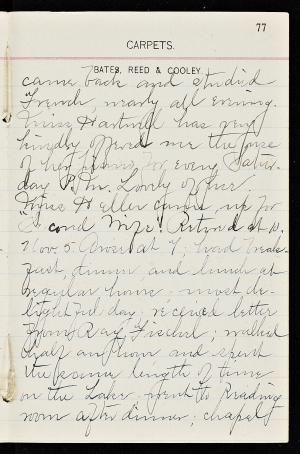 77
CARPETS.
BATES, REED & COOLEY.
came back and studied
French, nearly all evening.
Miss Hartwell has very
kindly offered me the use
of her piano, for every Satur-
day P.M. Lovely of her.
Miss Heller came up for
"Second Wife". Retired at 10.
Nov. 5. Arose at 7; had break-
fast, dinner and lunch at
regular hours; most de-
lightful day; received letter
from Ray Fischel; walked
half an hour and spent
the same length of time
on the Lake; went to Reading
room after dinner; chapel